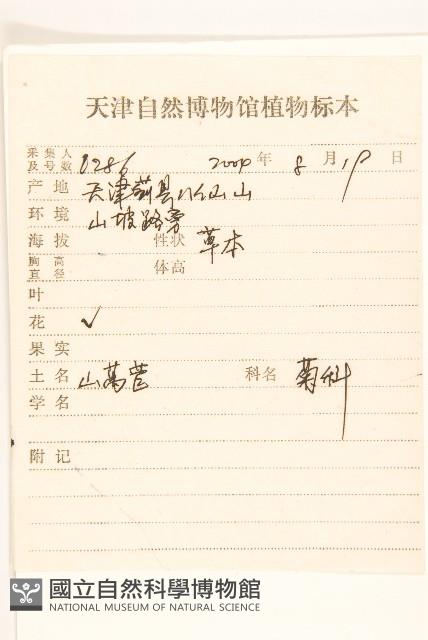 天津自然博物馆植物标本
采集人及号数 0286 2000年 8月 19日
产地 天津蓟县八仙山
环境 山坡路旁
海拔 性状 草本
胸高直径 体高
叶
花 ✓
果实
土名 山莴苣 科名 菊科
学名
附记
國立自然科學博物館
NATIONAL MUSEUM OF NATURAL SCIENCE